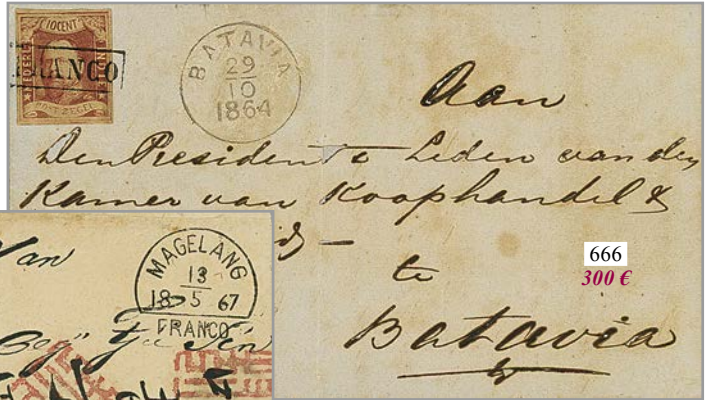 10CENT
POSTZEGEL
FRANCO
BATAVIA
29
10
1864
Aan
Den President & Leden van den
Kamer van Koophandel &
te
Batavia
666
300 €
MAGELANG
13
18 5 67
FRANCO